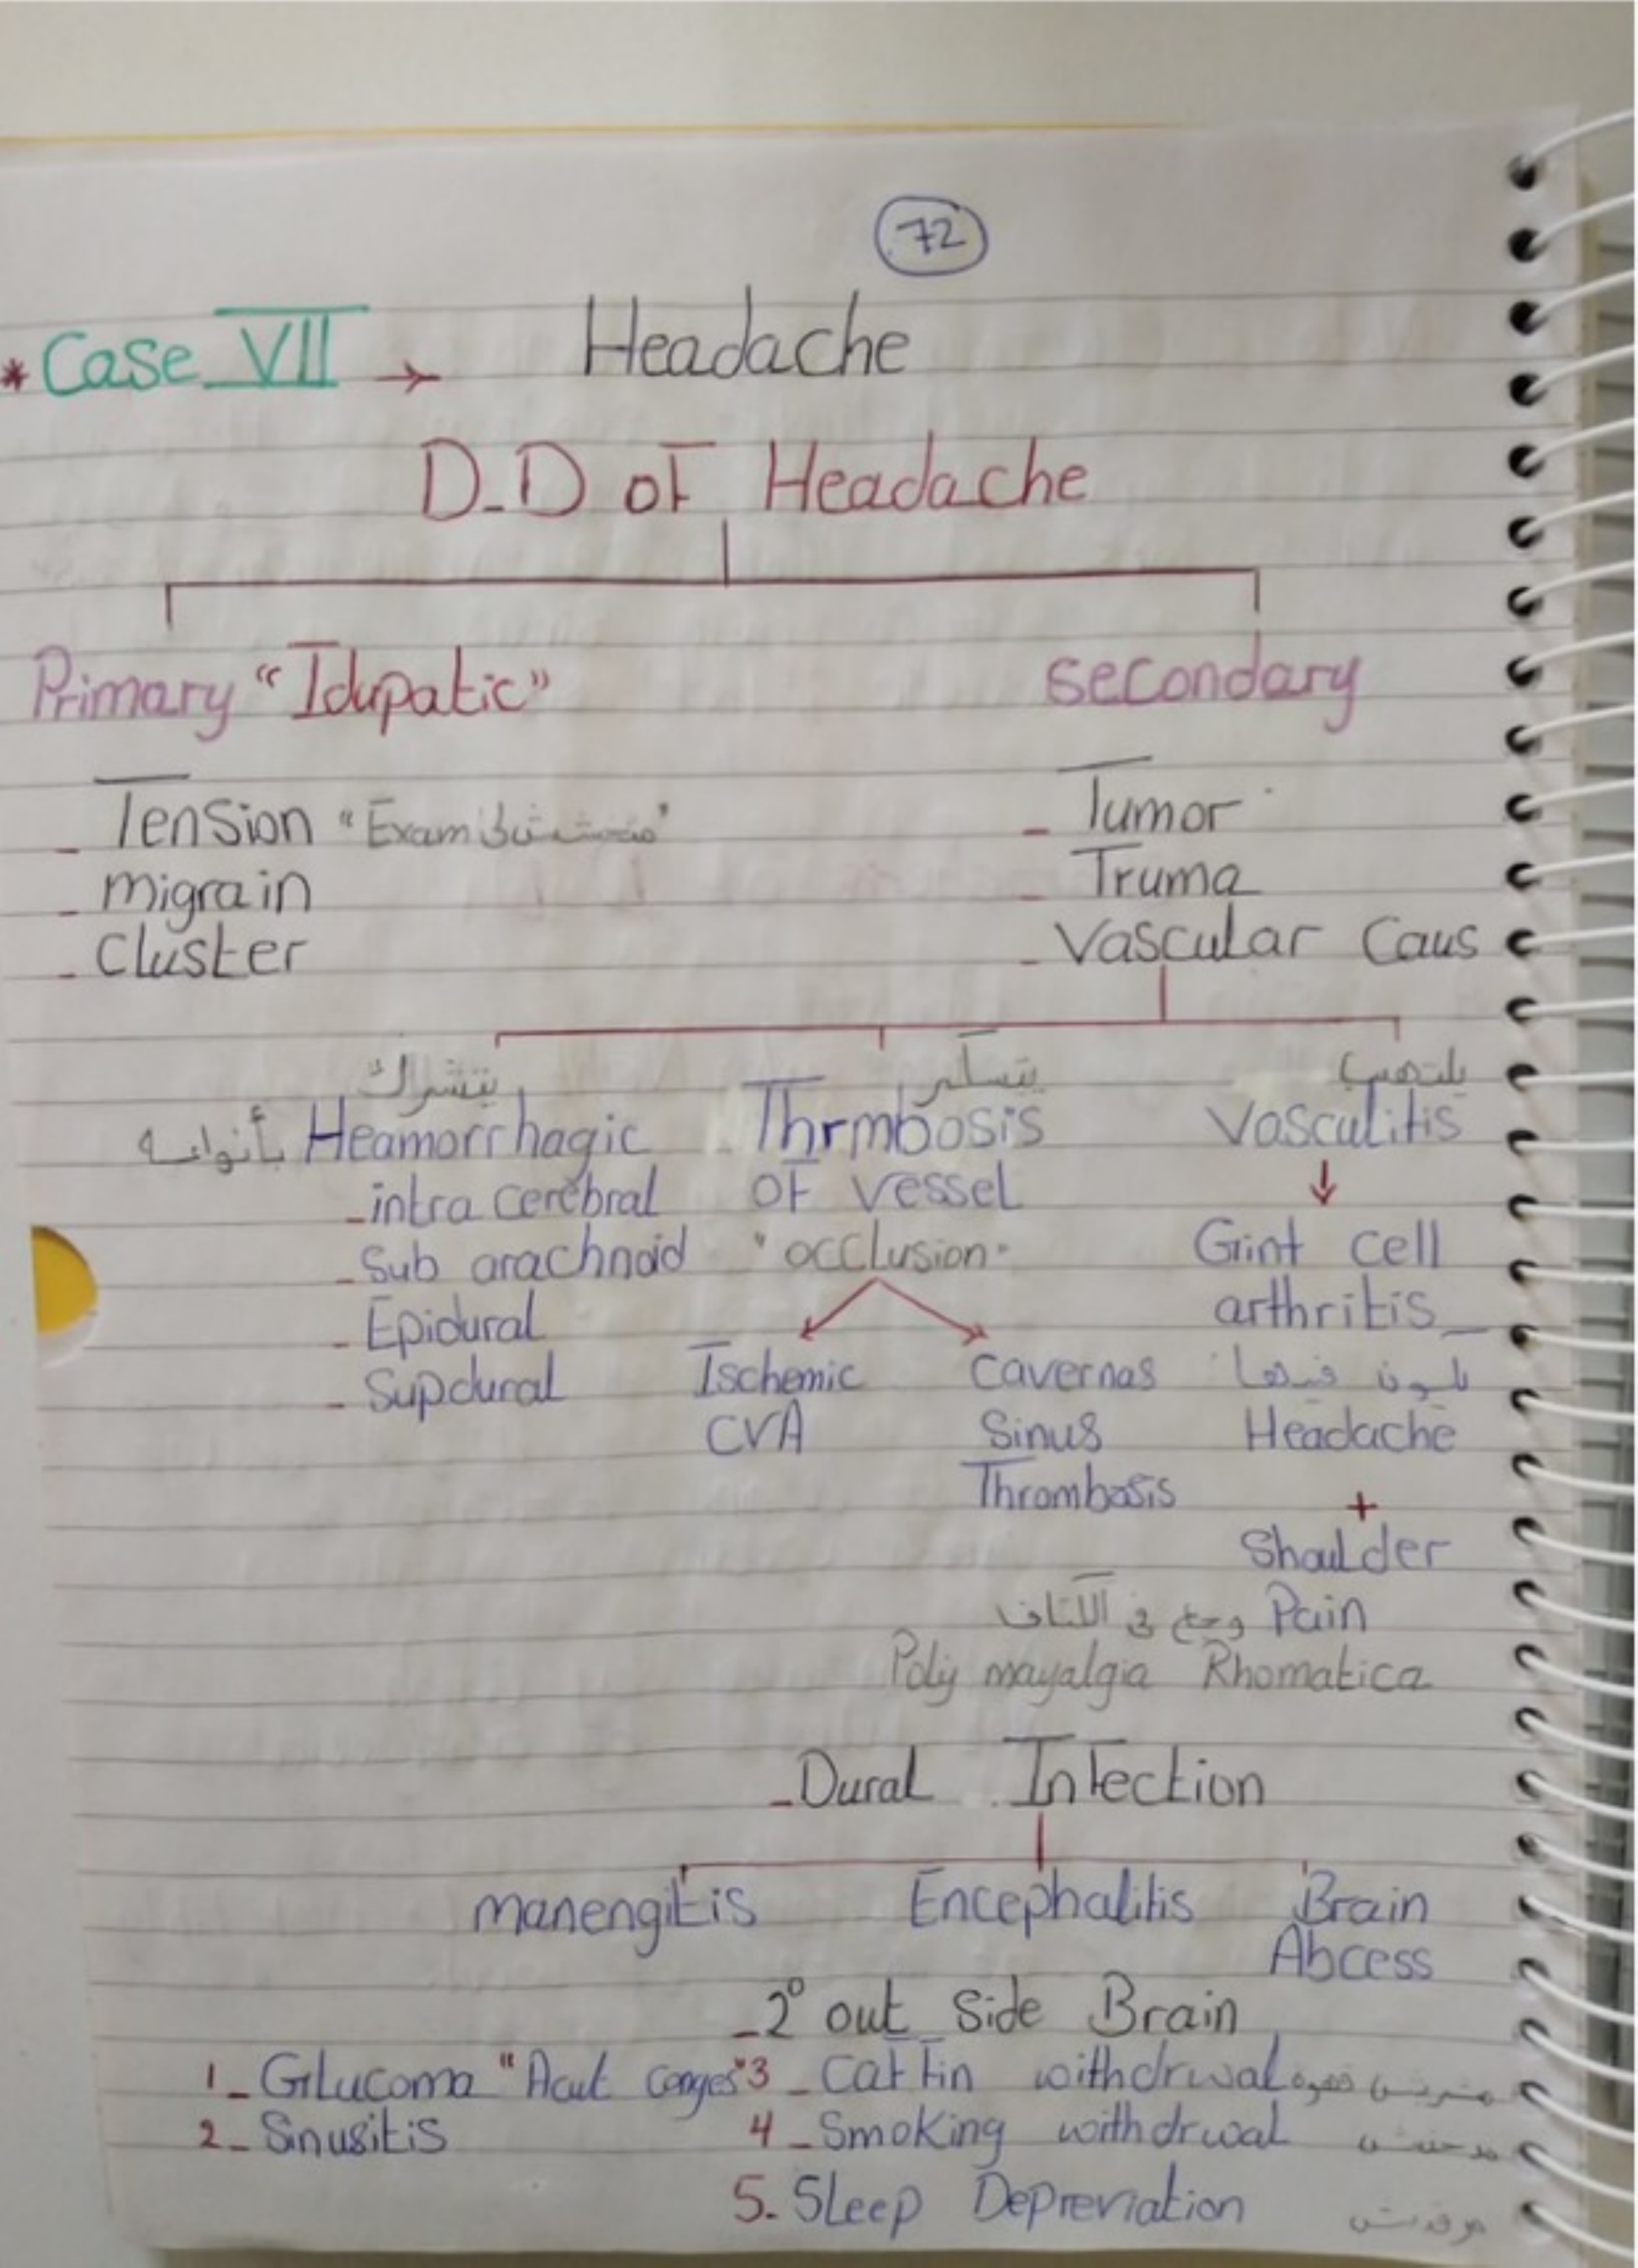 72
* Case VII → Headache
D-D of Headache
Primary "Idupatic"
secondary
- Tension "Exam"
- migrain
- Cluster
- Tumor
- Truma
- Vascular Caus
بأنواعه Heamorrhagic
- intra cerebral
- Sub arachnoid
- Epidural
- Supdural
يتسكر
Thrmbosis
of vessel
"occlusion"
Ischemic
CVA
Cavernas
Sinus
Thrombosis
يلتهب
Vasculitis
↓
Gint cell
arthritis
بكون فيها
Headache
+
Shoulder
Pain وجع في الاكتاف
Poly mayalgia Rhomatica
- Dural Infection
manengitis
Encephalitis
Brain
Abcess
- 2° out side Brain
1- Glucoma "Acut conges"
2- Sinusitis
3- Caffin withdrwal
4- Smoking withdrwal
5. Sleep Depreviation